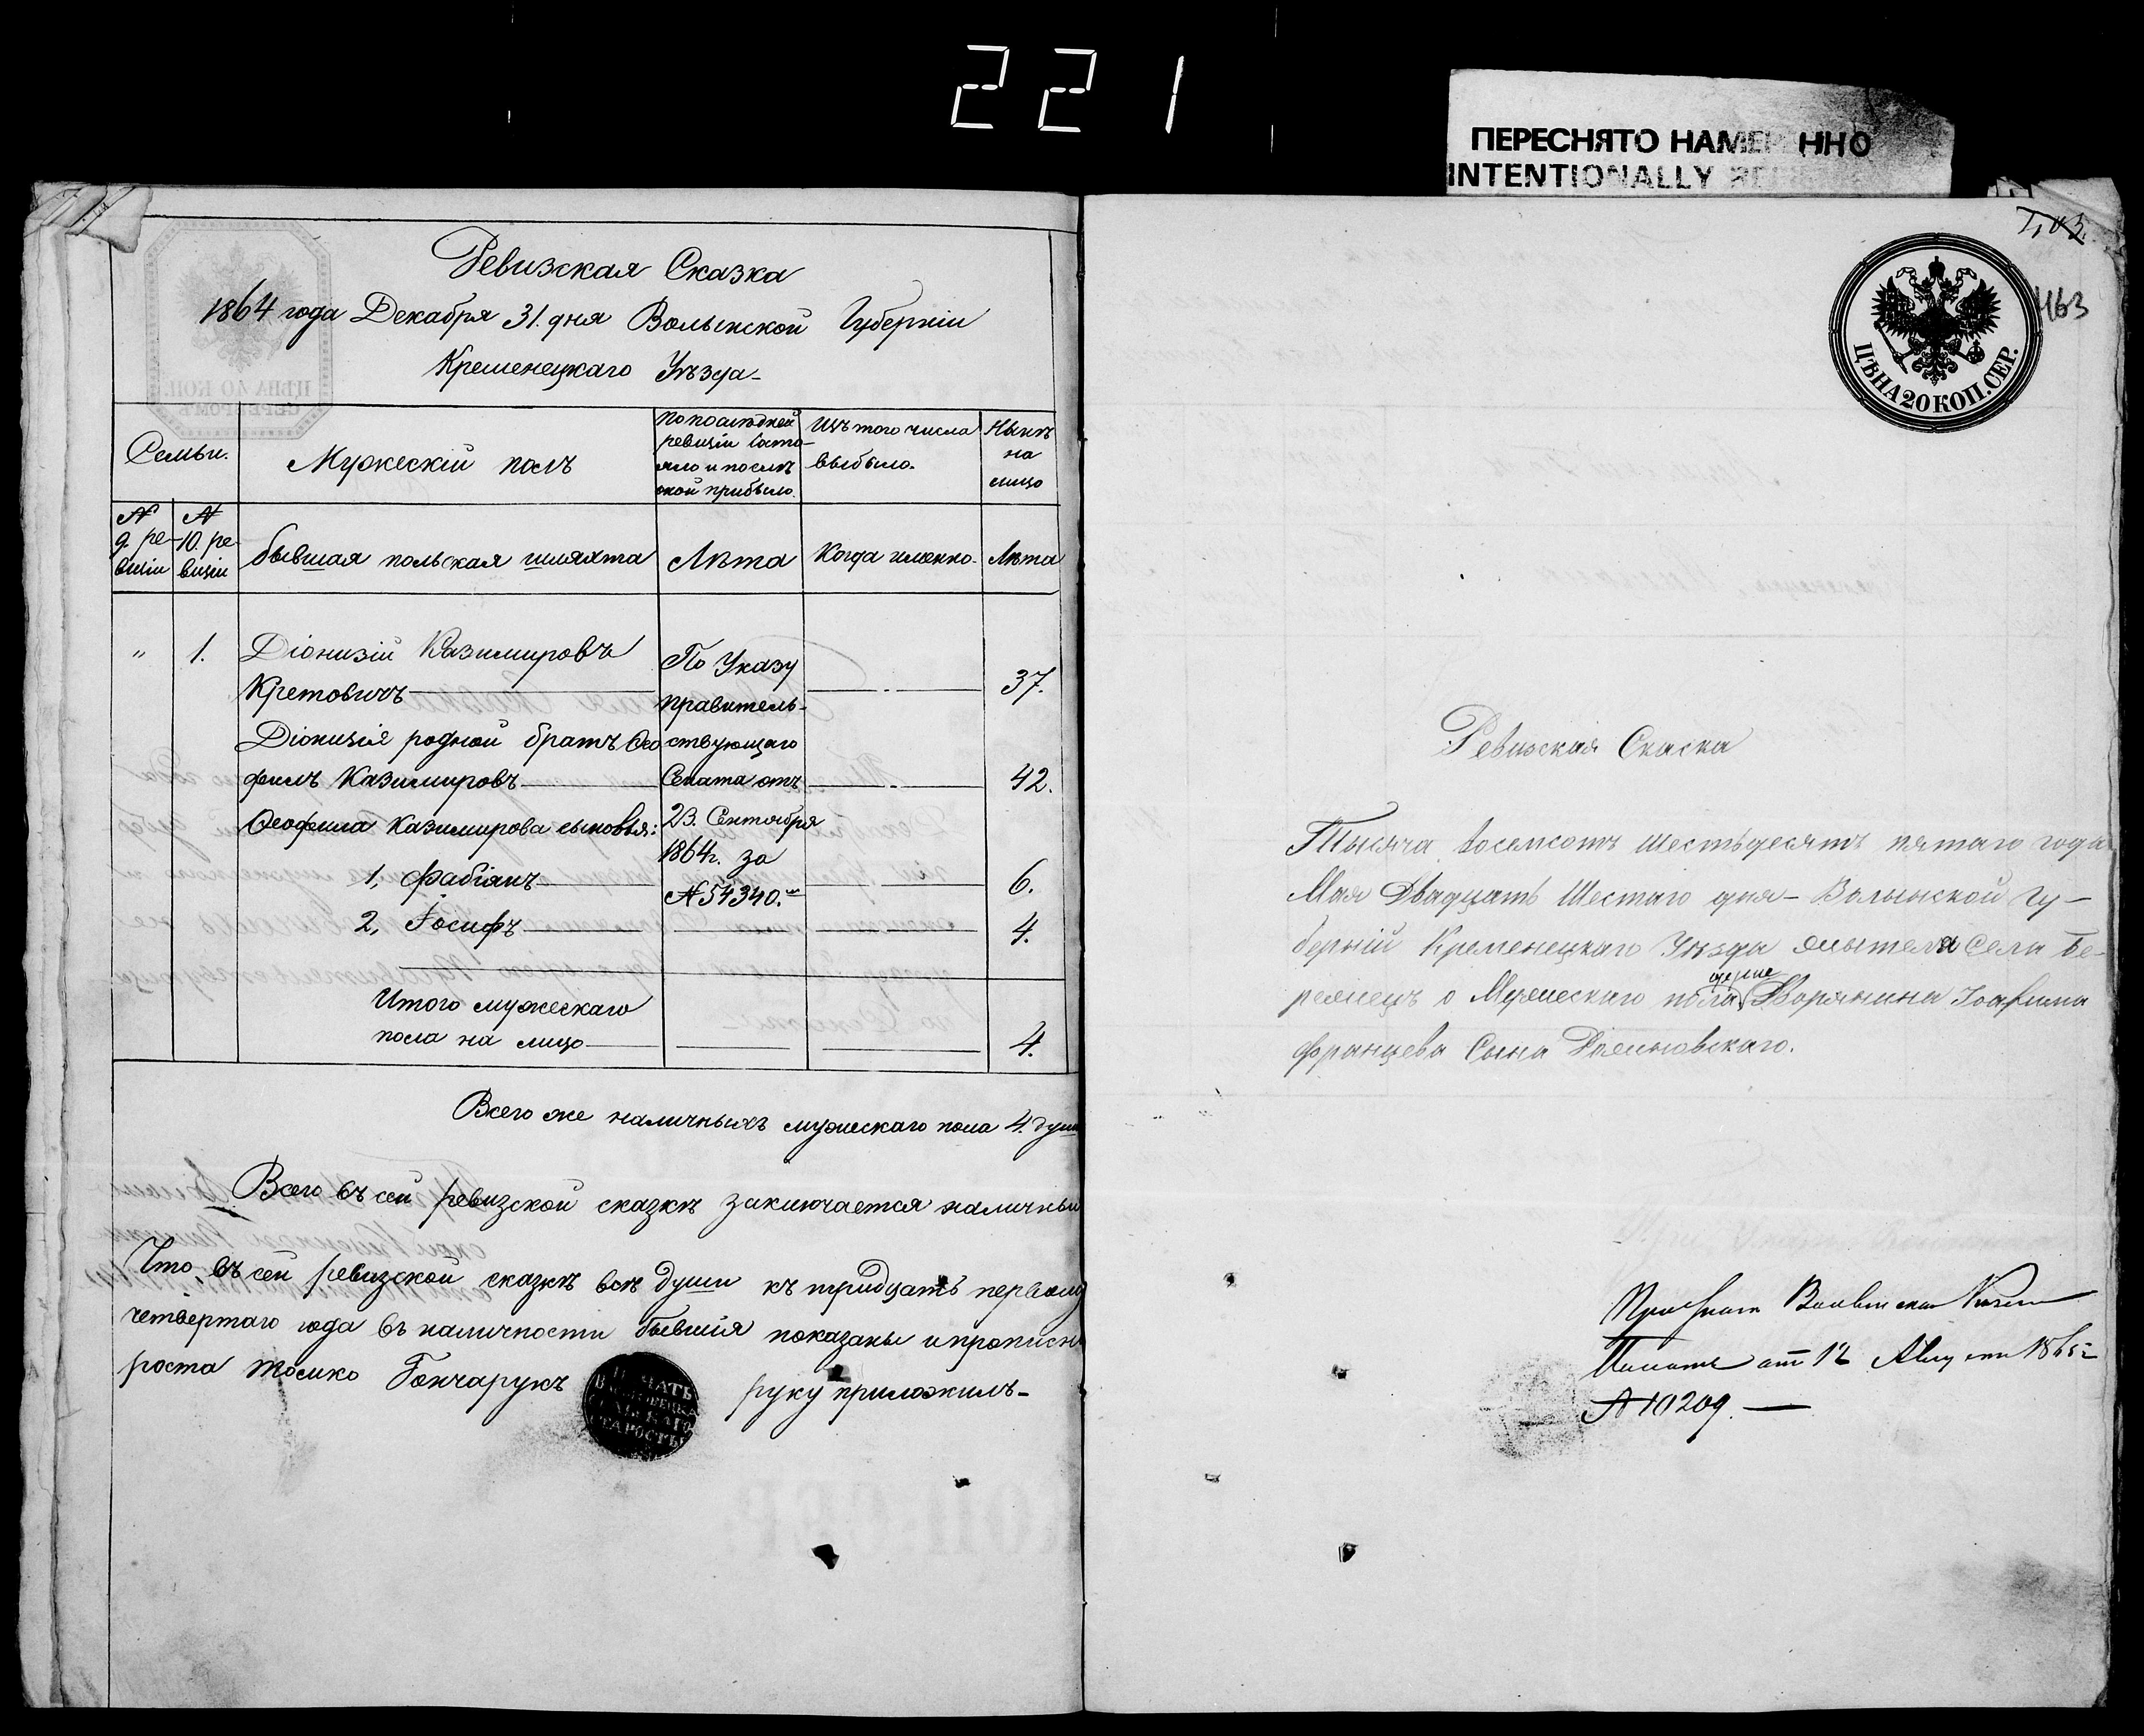 221
ПЕРЕСНЯТО НАМЕР ННО
INTENTIONALLY
Ревизская Сказка
1864 года Декабря 31. дня Волынской Губерніи
Кременецкаго Уѣзда
Семьи.
Мужескій полъ
По послѣдней
ревизіи состо-
яло и послѣ
оной прибыло.
Изъ того числа
выбыло.
Нынѣ
на
лицо
№
9. ре-
визіи
№
10. ре-
визіи
бывшая польская шляхта
Лѣта
Когда именно.
Лѣта
"
1.
Діонизій Казимировъ
Кретовичъ
37.
Діонизія родной братъ Ѳео
филъ Казимировъ
42.
Ѳеофила Казимирова сыновья:
1, Фабіянъ
6.
2, Іосифъ
4.
По Указу
Правитель-
ствующаго
Сената отъ
23. Сентября
1864г. за
№ 54340.
Итого мужескаго
пола на лицо
4.
Всего же наличныхъ мужескаго пола 4. души
Всего въ сей ревизской сказкѣ заключается наличны
Что въ сей ревизской сказкѣ всѣ души къ тридцать первому
четвертаго года въ наличности бывшія показаны и прописн
роста Томко Гончарукъ
руку приложилъ
ПЕЧАТЬ
СТАРОСТЫ
463
ЦѢНА 20 КОП. СЕР.
ЦѢНА 40 КОП.
СЕРЕБРОМЪ
Ревизская Сказка
Тысяча восемсотъ шестьдесятъ пятаго года
Мая Двадцать Шестаго дня – Волынской Гу-
берніи Кременецкаго Уѣзда жытеля Села Бе-
режецъ о Мужескаго пола Дворянина Іоахима
Францева Сына
отъ 12 Августа 1865 г
№ 10209.
КОП. СЕР.